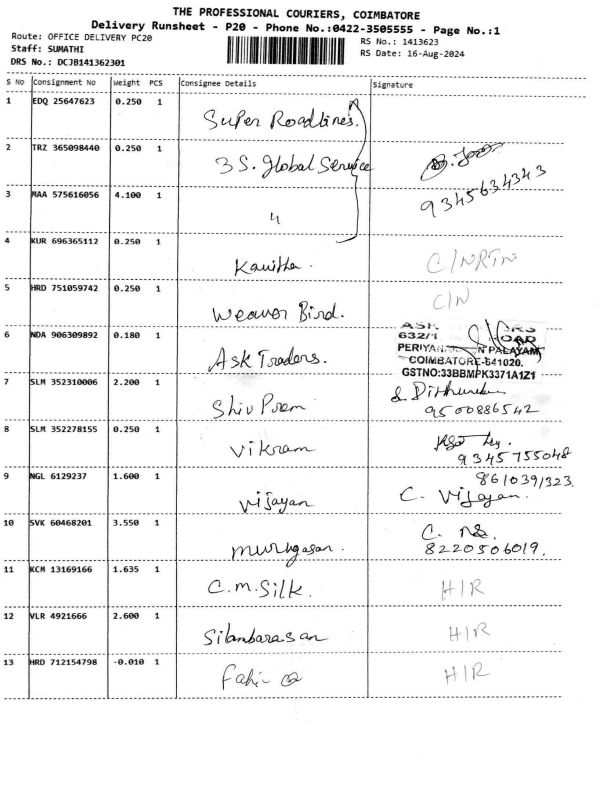 THE PROFESSIONAL COURIERS, COIMBATORE
Delivery Runsheet - P20 - Phone No.:0422-3505555 - Page No.:1
Route: OFFICE DELIVERY PC20
Staff: SUMATHI
DRS No.: DCJB141362301
RS No.: 1413623
RS Date: 16-Aug-2024
S No Consignment No Weight PCS Consignee Details Signature
1 EDQ 25647623 0.250 1 Super Roadlines.
2 TRZ 365098440 0.250 1 3 S. Global Service
9345634343
3 MAA 575616056 4.100 1 "
4 KUR 696365112 0.250 1 Kavitha. C/NRTN
5 HRD 751059742 0.250 1 Weaver Bird. C/N
6 NDA 906309892 0.180 1 Ask Traders. ASK
632/1
PERIYAN PALAYAM
COIMBATORE-641020.
GSTNO:33BBMPK3371A1Z1
7 SLM 352310006 2.200 1 Shiv Prem
9500886542
8 SLM 352278155 0.250 1 Vikram
9345755048
9 NGL 6129237 1.600 1 Vijayan 8610391323.
C. Vijayan.
10 SVK 60468201 3.550 1 Murugasan.
8220506019.
11 KCM 13169166 1.635 1 C.M.Silk. H/R
12 VLR 4921666 2.600 1 Silambarasan H/R
13 HRD 712154798 -0.010 1 H/R